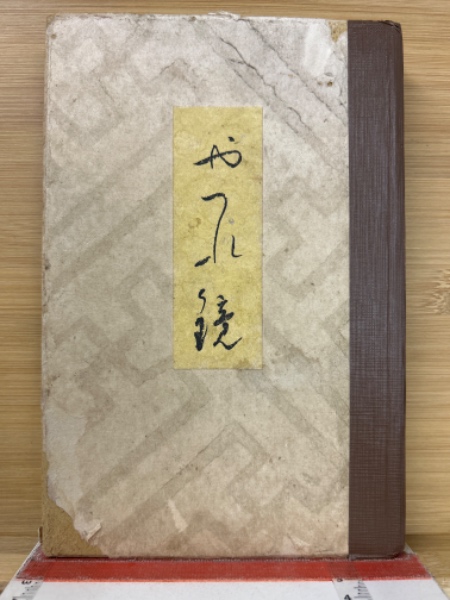 やつれ鏡